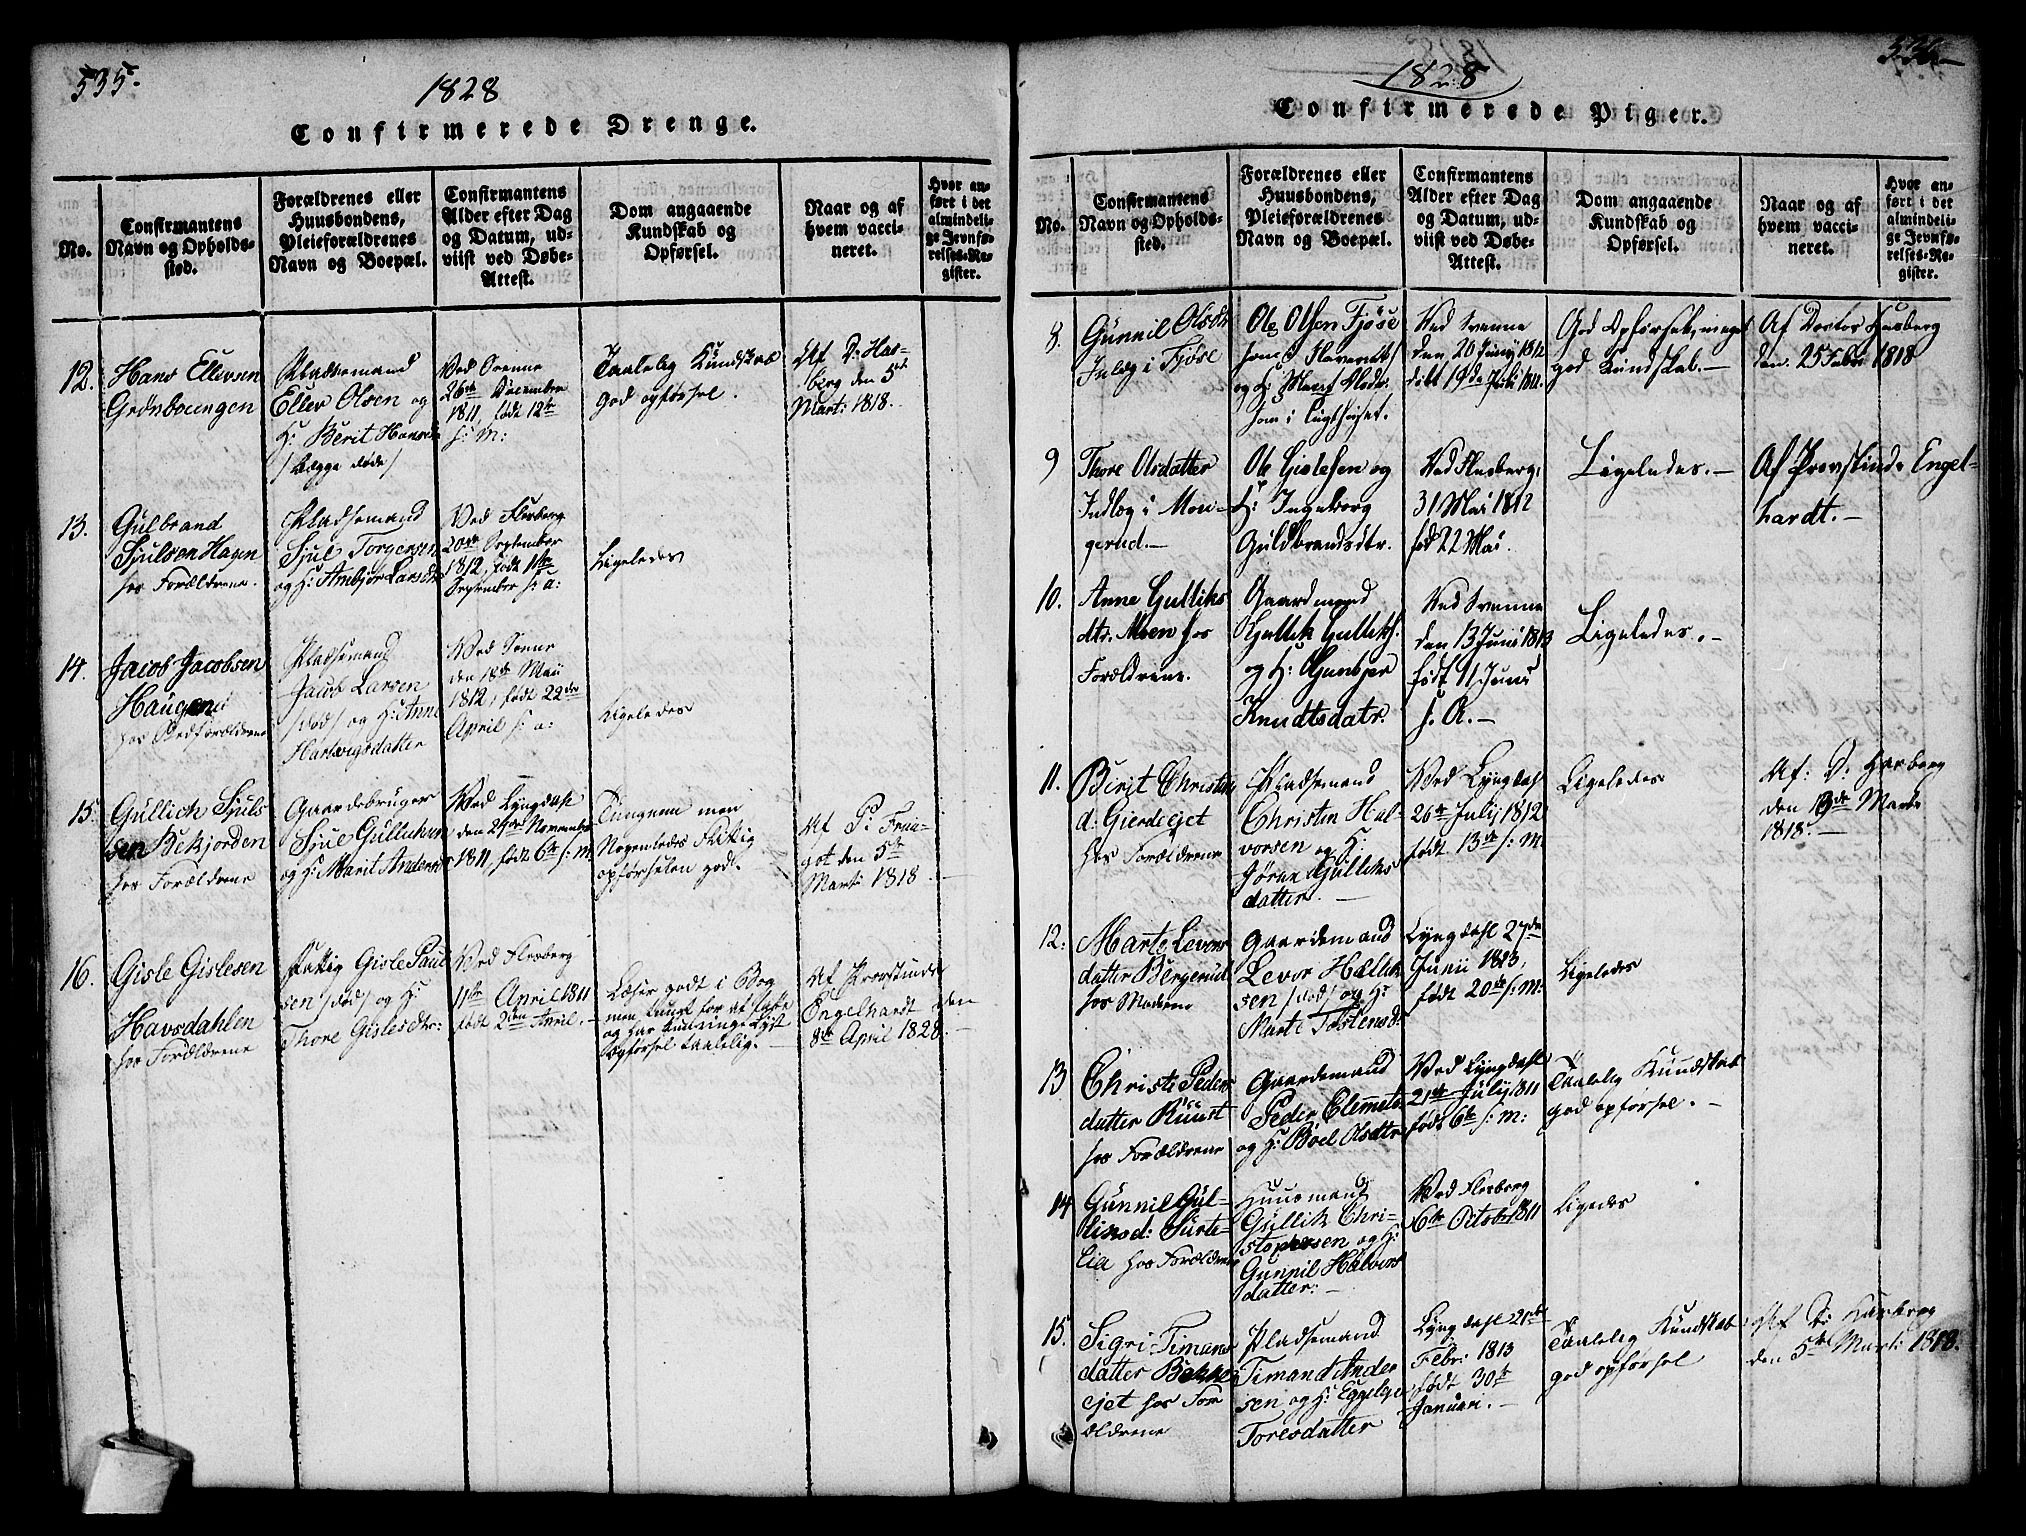 535.
1828
Confirmerede Drenge.
No.
Confirmantens
Navn og Opholds-
sted.
Forældrenes eller
Huusbondens,
Pleieforældrenes
Navn og Boepæl.
Confirmantens
Alder efter Dag
og Datum, ud-
viist ved Døbe-
Attest.
Dom angaaende
Kundskab og
Opførsel.
Naar og af
hvem vacci-
neret.
Hvor an-
ført i det
almindeli-
ge Jevnfø-
relses-Re-
gister.
12.
Hans Ellevsen
Grønboungen
Pladsemand
Ellev Olsen og
H: Berit Hansd
/ begge døde /
Ved Svenne
26de December
1811, født 12te
s: m:
Taalelig Kundskab
god opførsel.
Af D: Has-
berg den 5te
Marti 1818.
13.
Gulbrand
Sjulsen Hagen
hos Forældrene.
Pladsemand
Sjul Torgersen
og H: Ambjør Larsdtr
Ved Flesberg
20de September
1812, født 1ste
September s: a:
Ligeledes
14.
Jacob Jacobsen
Haugen
hos Pledforældrene
Pladsemand
Jacob Larsen
/død/ og H: Anne
Hartvigsdatter
Ved Svenne
den 18de Maii
1812, født 22de
April s: a:
Ligeledes
15.
Gullich Sjuls
sen Bekjorden
hos Forældrene
Gaardebruger
Sjul Gullichsen
og H: Marit Andersd
Ved Lyngdahl
den 24de November
1811, født 6te s: m:
Tungnem men
Nogenledes flittig
opførselen god.
Af P: Frau-
got den 5te
Marti 1818.
16.
Gisle Gislesen
Havsdahlen
hos Forældrene
Fattig Gisle Paul
sen /død/ og H:
Thore Gislesdtr:
Ved Flesberg
11te April 1811
født 2den April.
Læser godt i Bog
men tungt for at fatte
og har kun ringe Lyst
Opførsel taalelig.
Af Provstinde
Engelhardt den
8de April 1828.
536
1828
Confirmerede Piger.
No.
Confirmantens
Navn og Opholds-
sted.
Forældrenes eller
Huusbondens,
Pleieforældrenes
Navn og Boepæl.
Confirmantens
Alder efter Dag
og Datum, ud-
viist ved Døbe-
Attest.
Dom angaaende
Kundskab og
Opførsel.
Naar og af
hvem vacci-
neret.
Hvor an-
ført i det
almindeli-
ge Jevnfø-
relses-Re-
gister.
8.
Gunnil Olsdtr
Indlg i Fjøse
Ole Olsen Fjøse
som i Slaveriet/
og H: Maren
som i Tugthuset.
Ved Svenne
den 20 Juny 1812
født 19de
God Opførsel, meget
god Kundskab.
Af Doctor Hasberg
den 25 Febr 1818
9
Thore Olsdatter
Indlæg i Mon-
gerud.
Ole Gislesen og
H: Ingeborg
Guldbrandsdtr.
Ved Flesberg,
31 Mai 1812
fød 22 Mai.
Ligeledes.
Af Provstinde Engel-
hardt.
10.
Anne Gulliks
dtr. Moen hos
Forældrene.
Gaardmand
Gullik Gulliks.
og H: Gunbjør
Knudtsdatr.
Ved Svenne
den 13 Juni 1813
født 11 Juni
s. A.
Ligeledes.
11.
Berit Christens
d: Gierdeejet
hos Forældrene
Pladsemand
Christen Hal-
vorsen og H:
Jøran Gulliks
datter.
Ved Lyngdahl
26de July 1812
født 13de s: m:
Ligeledes
Af: D: Hasberg
den 19de Marti
1818.
12:
Marte Levors
datter Bergerud
hos Moderen
Gaardemand
Levor Hallik
sen /død/ og H:
Marte Tostensd:
Lyngdahl 27de
Junii 1813,
født 20de s: m:
Ligeledes
13
Christi Peders
datter Ruust
hos Forældrene
Gaardemand
Peder Clemets
og H: Boel Olsdtr
Ved Lyngdahl
21de July 1811
født 6te s: m:
Taalelig Kundskab
god opførsel.
14
Gunnil Gul-
liksd: Surte-
lia hos Forældrene
Huusmand
Gullik Chri-
stophersen og H:
Gunnil Halvors
datter:
Ved Flesberg
6te October 1811
Ligedes
15.
Sigri Timans
datter Bekke
ejet hos For
ældrene
Pladsemand
Timand Ander
sen og H: Eggelge
Toresdatter
Lyngdahl 21de
Febr: 1813
født 30te
Januar.
Taalelig Kundskab
god opførsel
Af D: Hasberg
den 5te Marti: 1818.